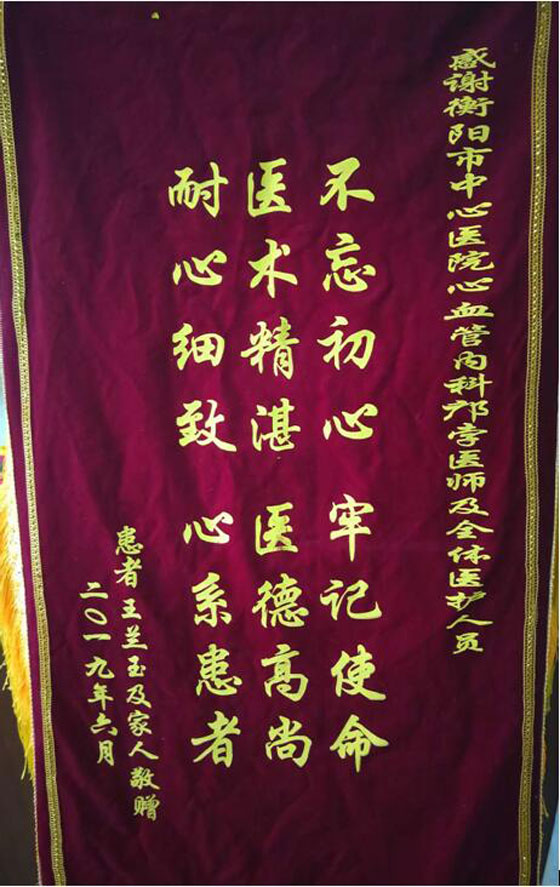 感谢衡阳市中心医院心血管内科邓宇医师及全体医护人员
不忘初心 牢记使命
医术精湛 医德高尚
耐心细致 心系患者
患者 王兰玉及家人 敬赠
二〇一九年六月